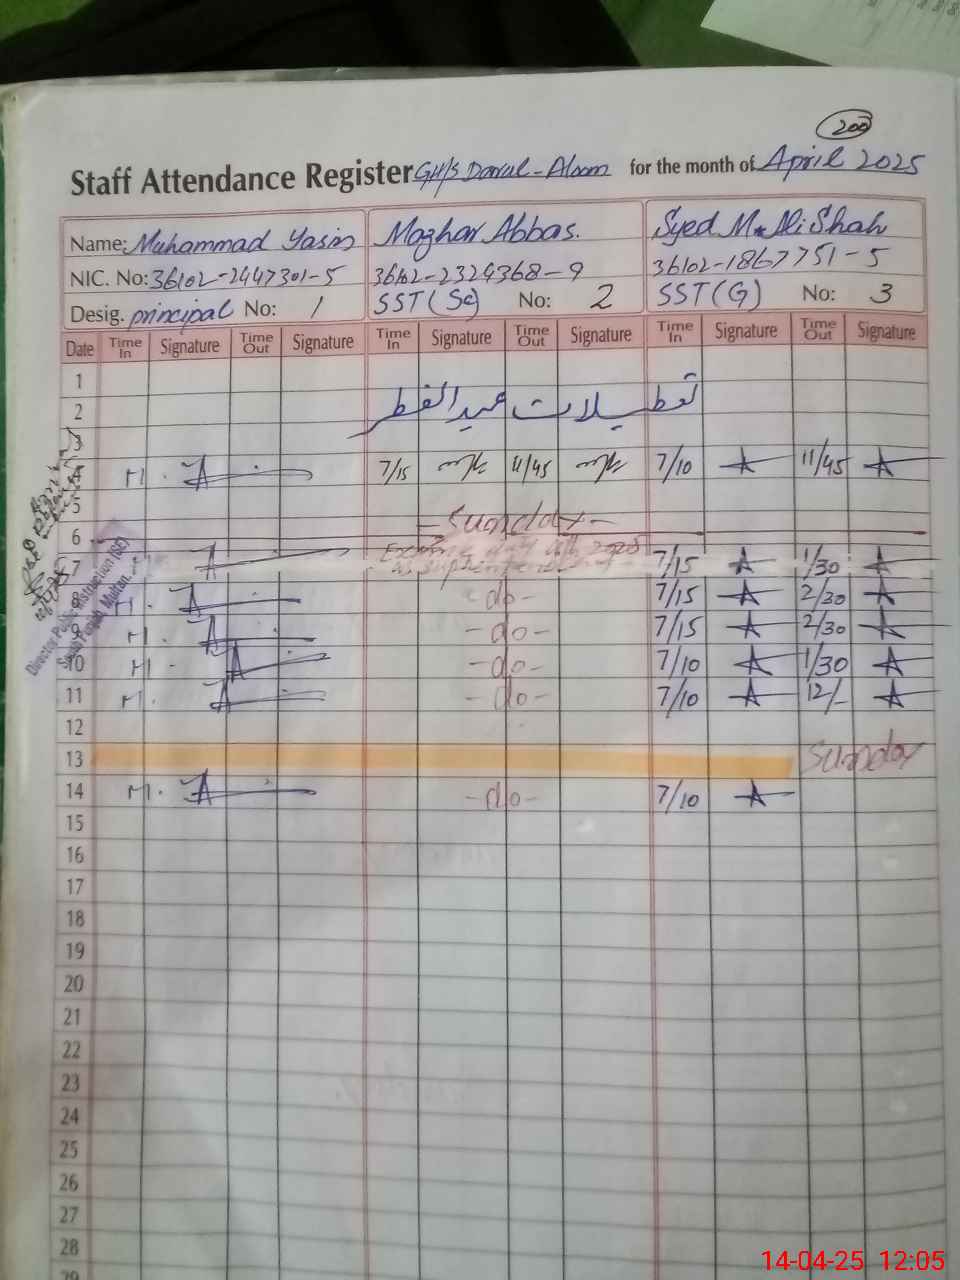 200
Staff Attendance Register GH/s Darul-Aloom for the month of April 2025
Name: Muhammad Yasin Mazhar Abbas. Syed M. Ali Shah
NIC. No: 36102-2447301-5 36102-2324368-9 36102-1867751-5
Desig. principal No: 1 SST(Sc) No: 2 SST(G) No: 3
Date Time In Signature Time Out Signature Time In Signature Time Out Signature Time In Signature Time Out Signature
1
2 تعطیلات عید الفطر
3
4 M. 7/15 11/45 7/10 11/45
5
6 -Sunday-
7 duty 2025 7/15 1/30
8 M. -do- 7/15 2/30
9 M. -do- 7/15 2/30
10 M. -do- 7/10 1/30
11 M. -do- 7/10 12/-
12
13 Sunday
14 M. -do- 7/10
15
16
17
18
19
20
21
22
23
24
25
26
27
28
29
Director Public Instruction (SE)
South Punjab, Multan.
14-04-25 12:05